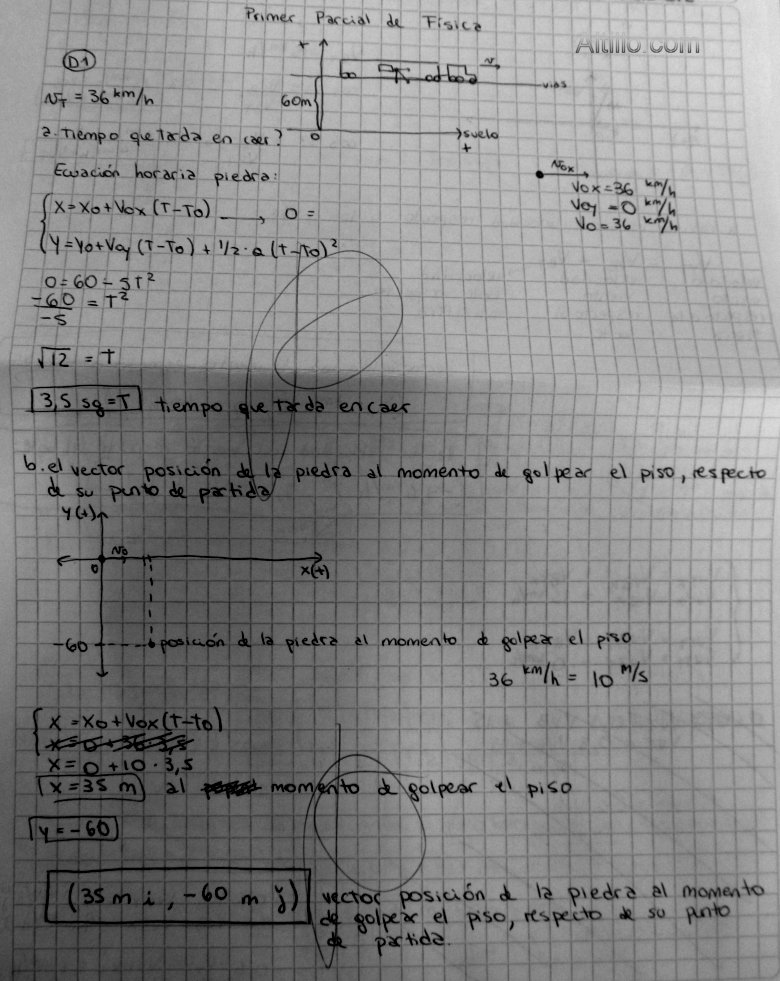 Primer Parcial de Física
Altillo.com
D1
+
v
vias
60m
VT = 36 km/h
0
suelo
+
a. tiempo que tarda en caer?
Vox
Ecuación horaria piedra:
Vox = 36 km/h
Voy = 0 km/h
Vo = 36 km/h
x = xo + Vox (T-To) → 0 =
Y = Yo + Voy (T-To) + 1/2 · a (T-To)²
0 = 60 - 5T²
-60/-5 = T²
√12 = T
3,5 sg = T tiempo que tarda en caer
b. el vector posición de la piedra al momento de golpear el piso, respecto
de su punto de partida
Y(+)
Vo
0
x(+)
-60 posición de la piedra al momento de golpear el piso
36 km/h = 10 m/s
x = xo + Vox (T-to)
x = 0 + 36 · 3,5
x = 0 + 10 · 3,5
x = 35 m al momento de golpear el piso
y = -60
(35 m i, -60 m j) vector posición de la piedra al momento
de golpear el piso, respecto de su punto
de partida.